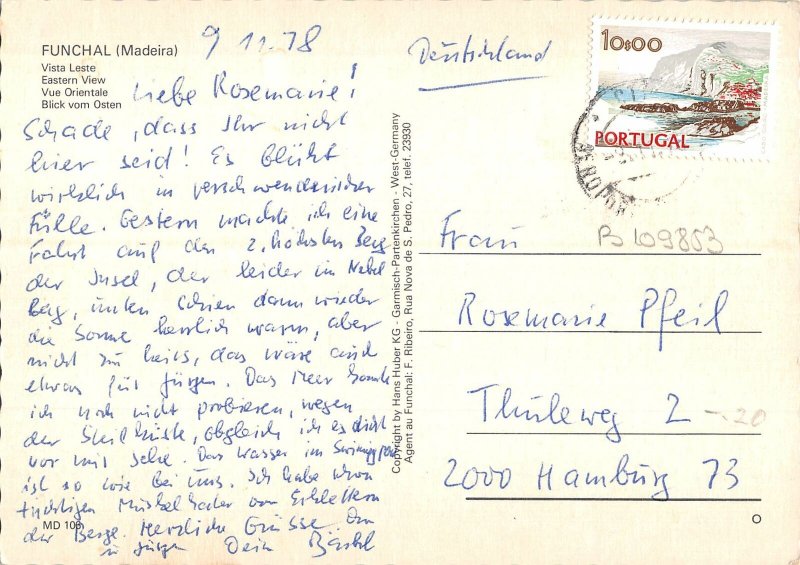 FUNCHAL (Madeira)
Vista Leste
Eastern View
Vue Orientale
Blick vom Osten
9 11.78
Liebe Rosemarie!
Schade, dass Ihr nicht
hier seid! Es blüht
wirklich in verschwenderischer
Fülle. Gestern machte ich eine
Fahrt auf den 2. höchsten Berg
der Insel, der leider im Nebel
lag, unten schien dann wieder
die Sonne herrlich warm, aber
nicht zu heiss, das wäre auch
etwas für Jürgen. Das Meer konnte
ich noch nicht probieren, wegen
der Steilküste, obgleich ich es dicht
vor mir sehe. Das Wasser im Swimmingpool
ist so wie bei uns. Ich habe schon
tüchtigen Muskelkater vom Erklettern
der Berge. Herzliche Grüsse Dir
u Jürgen Dein
MD 106
Copyright by Hans Huber KG - Garmisch-Partenkirchen - West-Germany
Agent au Funchal: F. Ribeiro, Rua Nova de S. Pedro, 27, telef. 23930
Deutschland
10$00
PORTUGAL
Frau
B 109853
Rosemarie Pfeil
Thuleweg 2
-.20
2000 Hamburg 73